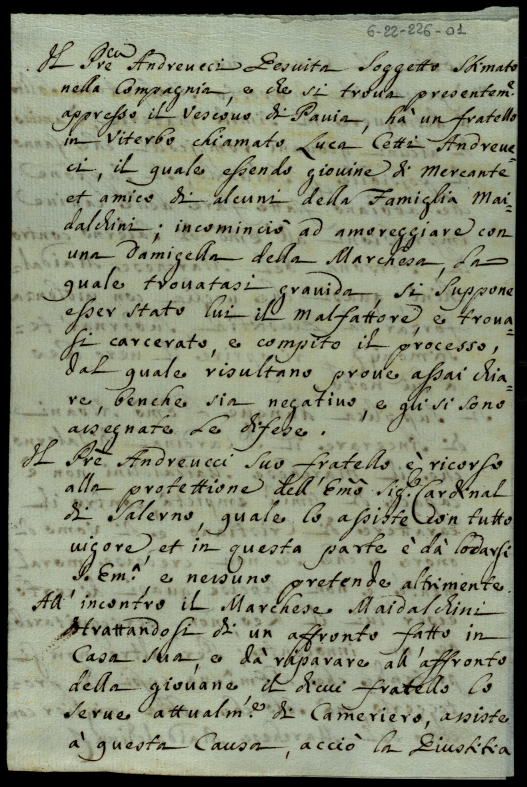 6-22-226-01
Il Pre Andreucci Gesuita Soggetto stimato
nella Compagnia, e che si troua presentem.e
appresso il Vescouo di Pauia, hà un fratello
in Viterbo chiamato Luca Cetti Andreuc=
ci, il quale essendo giouine di Mercante
et amico di alcuni della Famiglia Mai=
dalchini; incominciò ad amoreggiare con
una Damigella della Marchesa, La
quale trouatasi grauida, si suppone
esser stato lui il Malfattore, e troua=
si carcerato, e compito il processo,
dal quale risultano proue assai chia=
re, benche sia negatiuo, e gli si sono
assegnate le difese.
Il Prē Andreucci suo fratello è ricorso
alla protettione dell' Emō Sig.r Cardinal
di Salerno, quale lo assiste con tutto
uigore, et in questa parte è dà lodarsi
S. Em.a, e nessuno pretende altrimente.
All' incontro il Marchese Maidalchini
trattandosi di un affronto fatto in
Casa sua, e dà riparare all' affronto
della giouane, il dicui fratello lo
serue attualm.e di Cameriero, assiste
à questa Causa, acciò la Giustitia